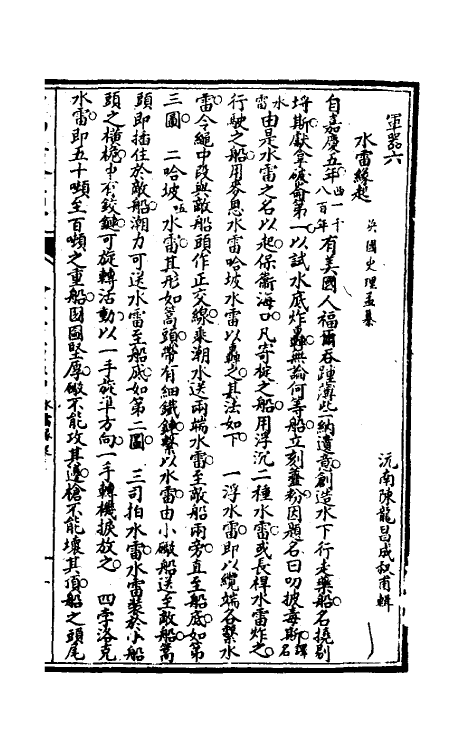 軍器六
水雷緣起 英國史理孟纂
沅南陳龍昌成叔甫輯
自嘉慶五年西一千八百年有美國人福爾吞踵薄些納遺意創造水下行走藥船名撓剔
埓斯獻拿破侖第一以試水底炸轟無論何等船立刻虀粉因題名曰叨披毒斯譯名
水雷由是水雷之名以起保衛海口凡寄椗之船用浮沉二種水雷或長桿水雷炸之
行駛之船用麥思水雷哈坡水雷以轟之其法如下 一浮水雷即以纜端各繫水
雷令繩中段與敵船頭作正交線乘潮水送兩端水雷至敵船兩旁直至船底如第
三圖 二哈坡水雷其形如蒿頭帶有細鐵鍊繫以水雷由小礮船送至敵船蒿
頭即插住於敵船潮力可送水雷至船底如第二圖 三司拍水雷水雷裝於小船
頭之橫桅中有鉸鏈可旋轉活動以一手旋準方向一手轉機捩放之 四孛洛克
水雷即五十噸至百噸之重船因圖堅厚礮不能攻其邊槍不能壞其頂船之頭尾